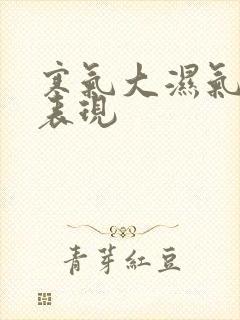 寒氣大濕氣
表現
青芽紅豆